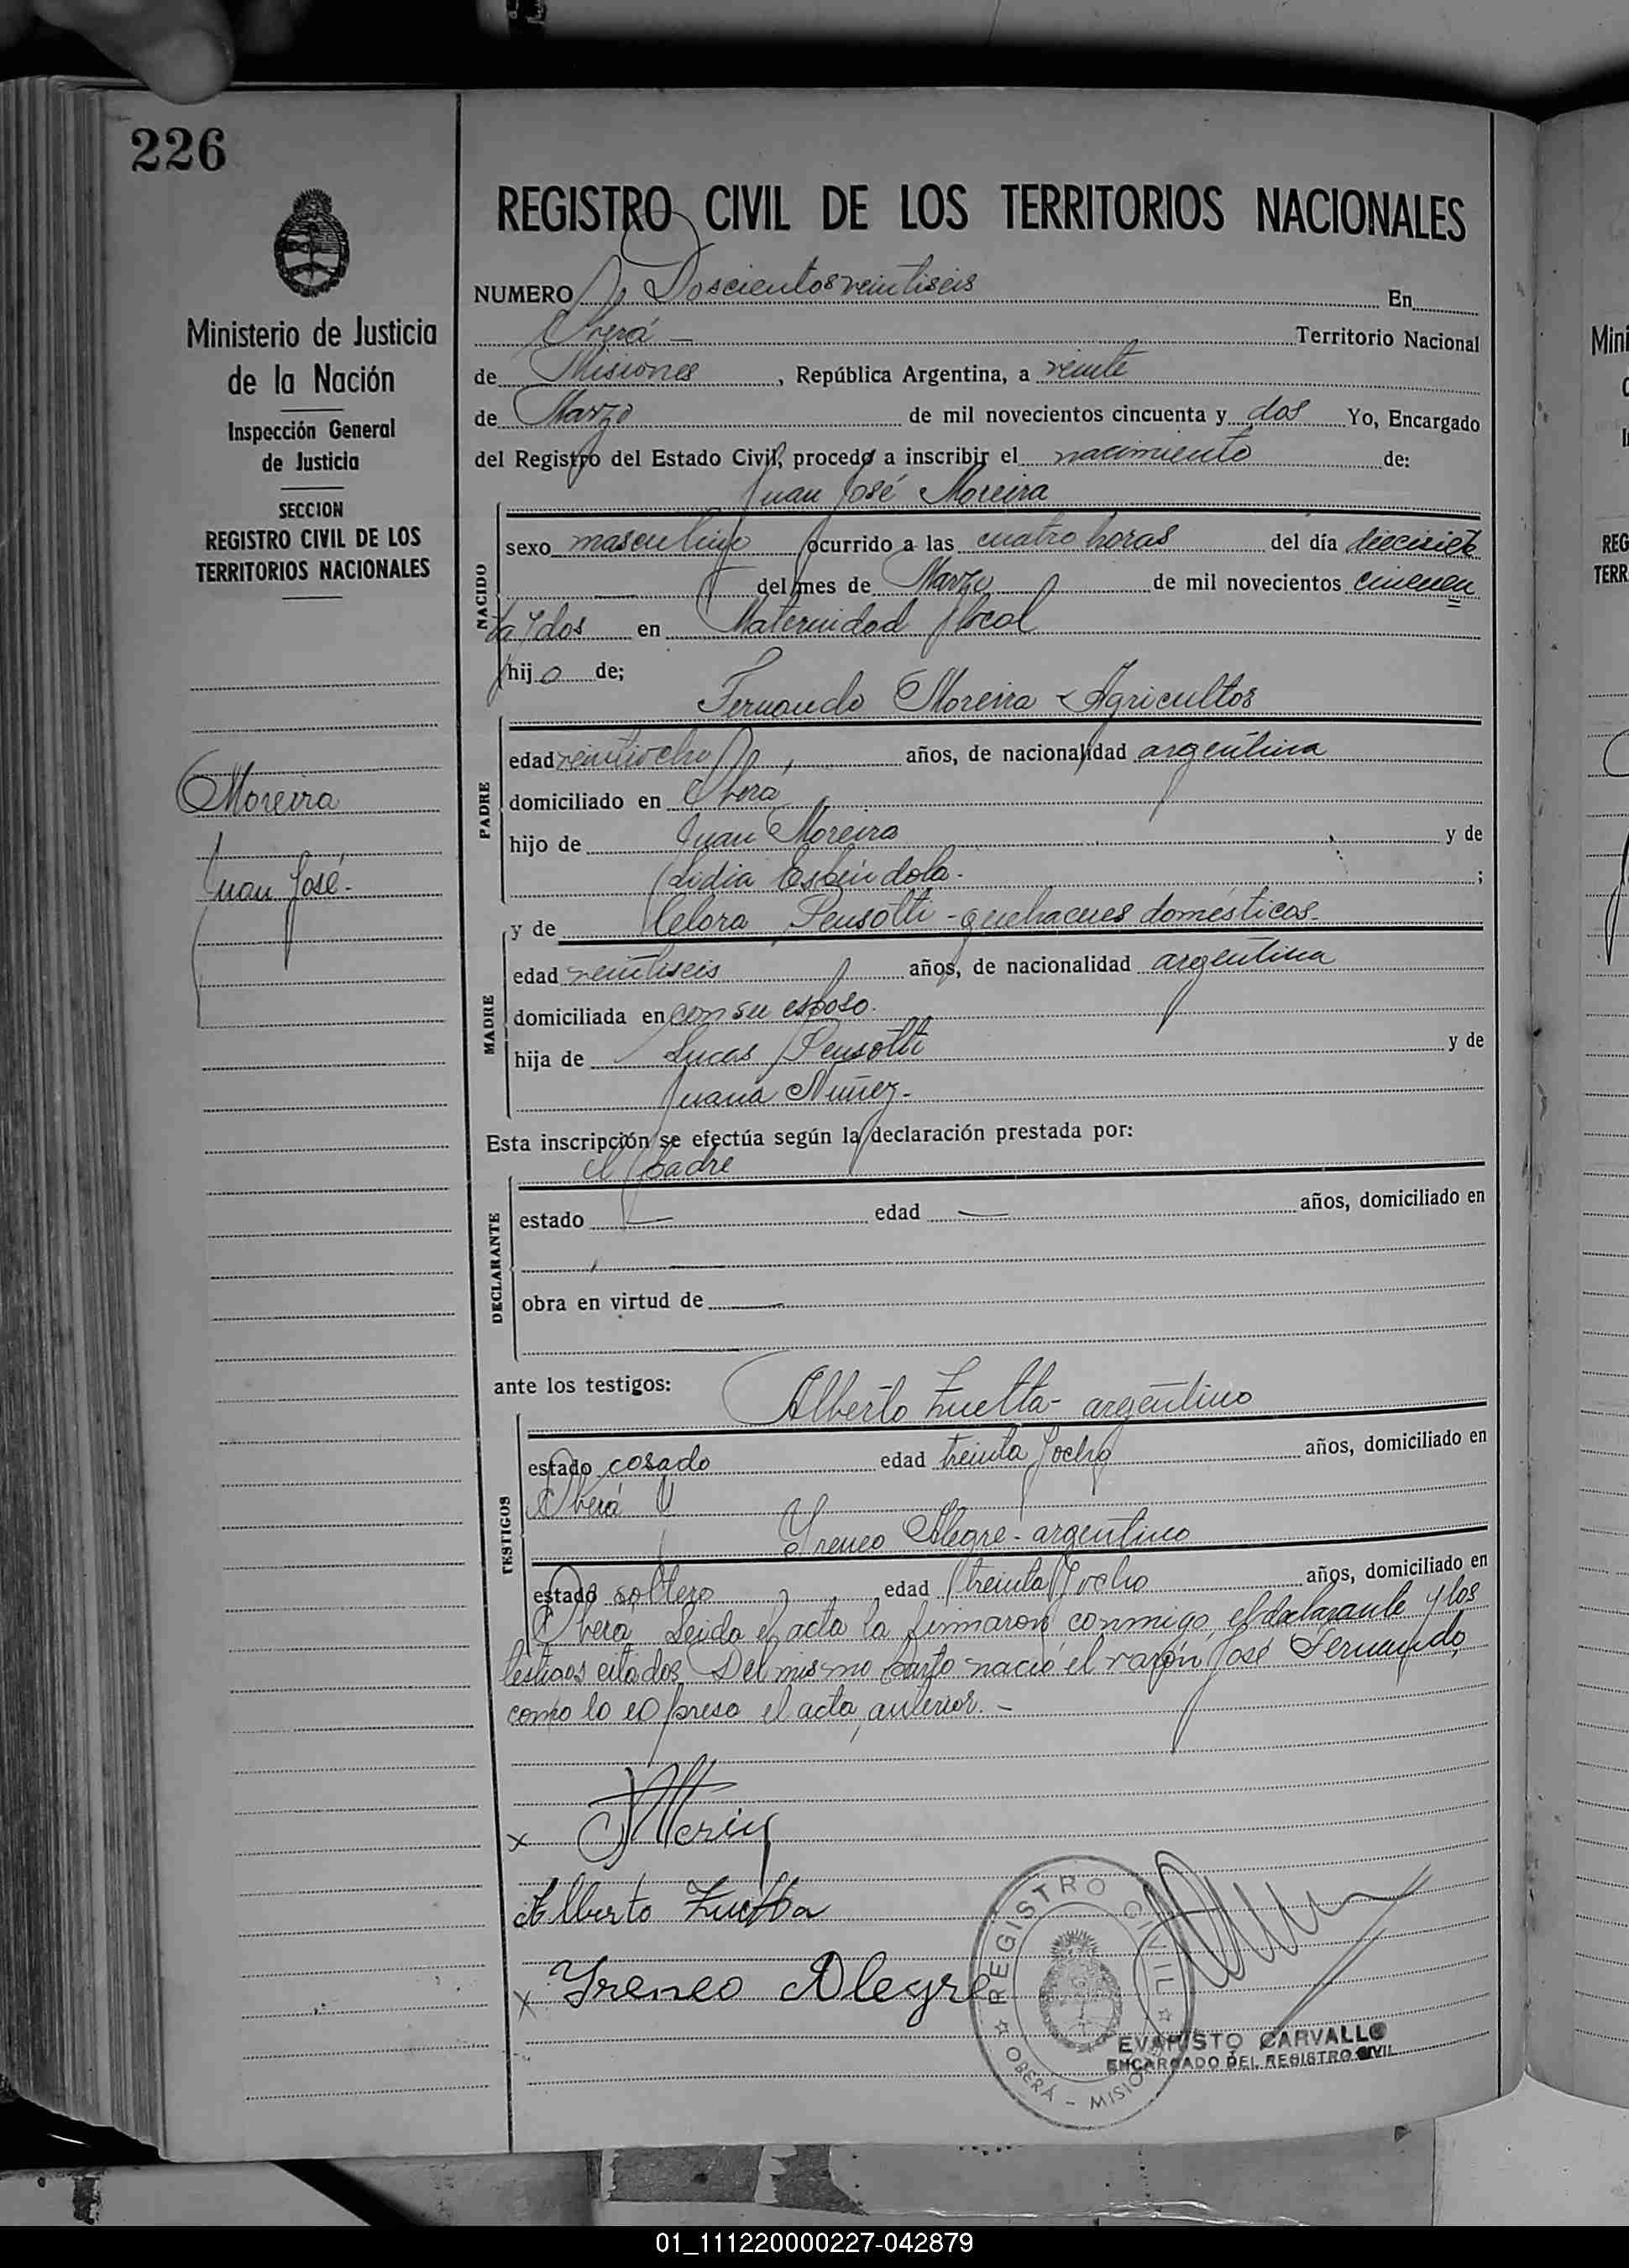 226
Ministerio de Justicia
de la Nación
Inspección General
de Justicia
SECCION
REGISTRO CIVIL DE LOS
TERRITORIOS NACIONALES
Moreira
Juan José.-
REGISTRO CIVIL DE LOS TERRITORIOS NACIONALES
NUMERO Doscientos veintiseis En
Oberá - Territorio Nacional
de Misiones, República Argentina, a veinte
de Marzo de mil novecientos cincuenta y dos Yo, Encargado
del Registro del Estado Civil, procedo a inscribir el nacimiento de:
Juan José Moreira
NACIDO
sexo masculino ocurrido a las cuatro horas del día diecisiete
— del mes de Marzo de mil novecientos cincuen
ta y dos en Maternidad local
hijo de;
Fernando Moreira - Agricultor
PADRE
edad veintiocho años, de nacionalidad argentina
domiciliado en Oberá
hijo de Juan Moreira y de
Lidia Espíndola.- ;
y de Clora Pensotti - quehaceres domésticos.
MADRE
edad veintiseis años, de nacionalidad argentina
domiciliada en con su esposo.
hija de Lucas Pensotti y de
Juana Nuñez.-
Esta inscripción se efectúa según la declaración prestada por:
el padre
DECLARANTE
estado — edad — años, domiciliado en
—
obra en virtud de —
—
ante los testigos:
Alberto Zuetta - argentino
TESTIGOS
estado casado edad treinta y ocho años, domiciliado en
Oberá
Ireneo Alegre - argentino
estado soltero edad treinta y ocho años, domiciliado en
Oberá Leida el acta la firmaron conmigo, el declarante y los
testigos citados. Del mismo parto nació el varón José Fernando,
como lo expresa el acta anterior.-
x
Alberto Zuetta
x Yreneo Alegre
REGISTRO CIVIL
OBERÁ - MISIONES
EVARISTO CARVALLO
ENCARGADO DEL REGISTRO CIVIL
Mini
REG
TERR
01_111220000227-042879